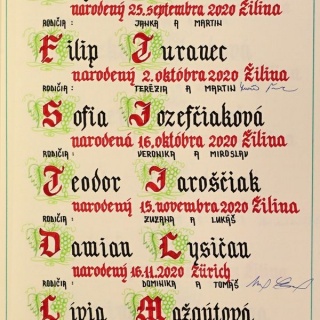 narodený 25. septembra 2020 Žilina
RODIČIA: JANKA A MARTIN
Filip Turanec
narodený 2. októbra 2020 Žilina
RODIČIA: TERÉZIA A MARTIN
Sofia Jozefčiaková
narodená 16. októbra 2020 Žilina
RODIČIA: VERONIKA A MIROSLAV
Teodor Jaroščiak
narodený 15. novembra 2020 Žilina
RODIČIA: ZUZANA A LUKÁŠ
Damian Lysičan
narodený 16.11.2020 Zürich
RODIČIA: DOMINIKA A TOMÁŠ
Lívia